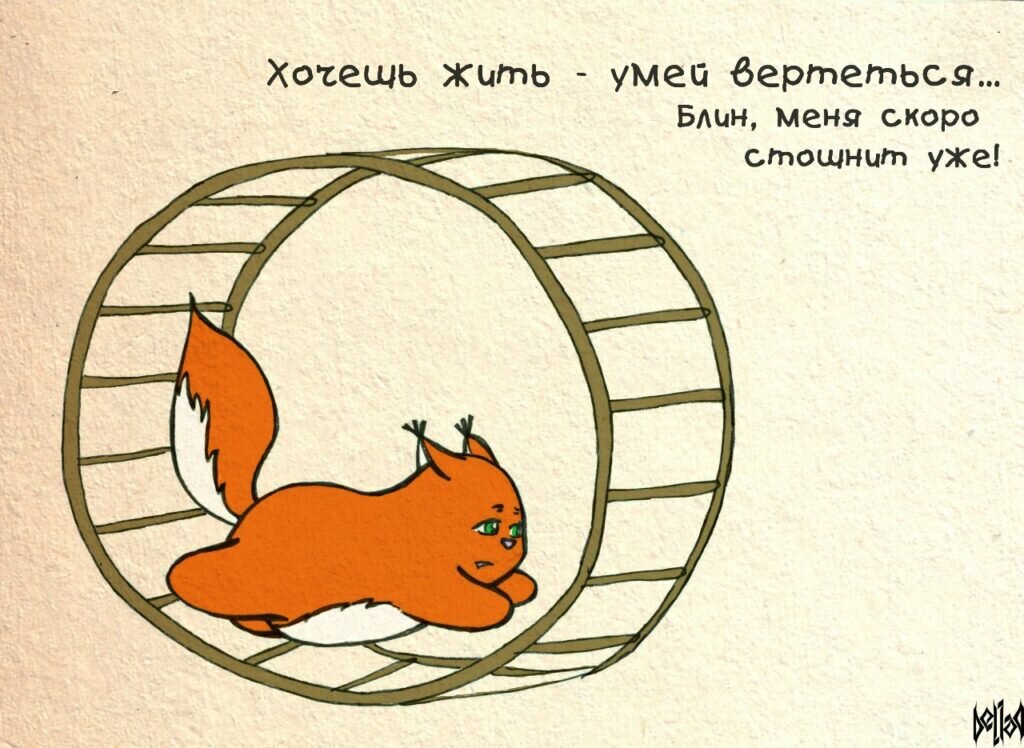 Хочешь жить - умей вертеться...
Блин, меня скоро
стошнит уже!